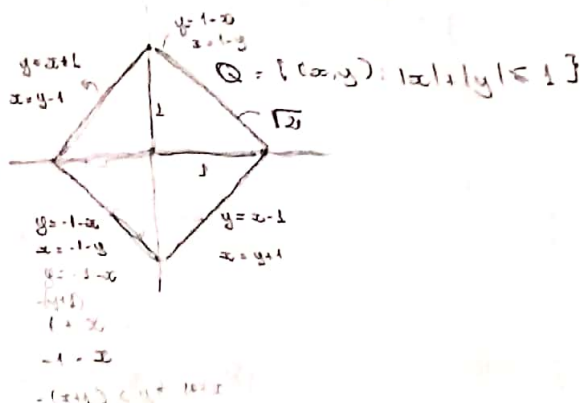 y=1-x
x=1-y
y=x+1
x=y-1
Q = { (x,y) : |x|+|y| ≤ 1 }
1
√2
1
y=-1-x
x=-1-y
y=x-1
x=y+1
y=-1-x
1+x
-1=x